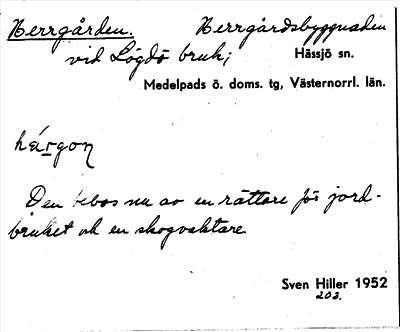 Herrgården. Herrgårdsbyggnaden
vid Lögdö bruk; Hässjö sn.
Medelpads ö. doms. tg, Västernorrl. län.
hárgon
Den bebos nu av en rättare för jord-
bruket och en skogvaktare.
Sven Hiller 1952
203.